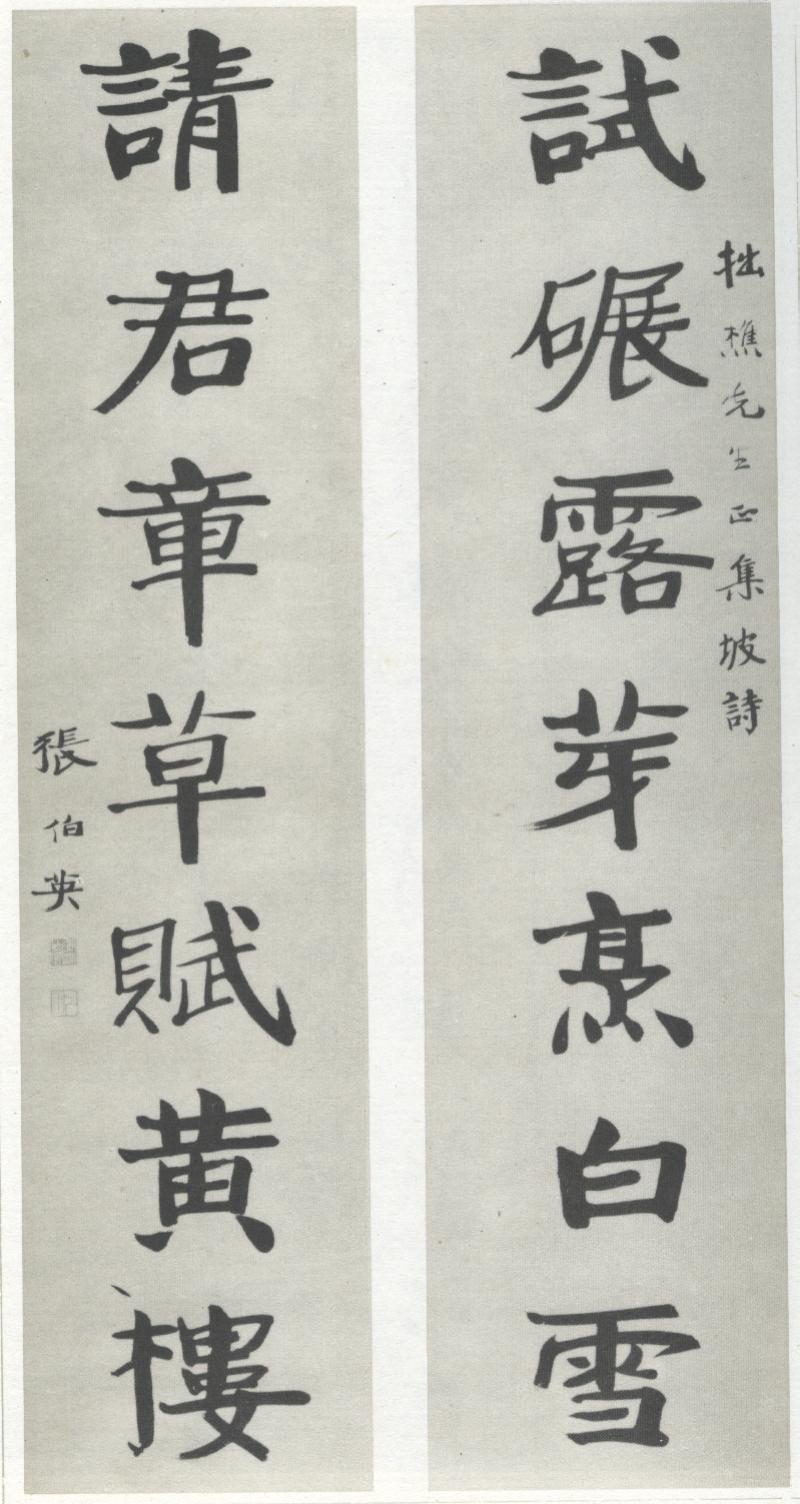 拙樵先生正集坡詩
試碾露芽烹白雪
請君章草賦黃樓
張伯英